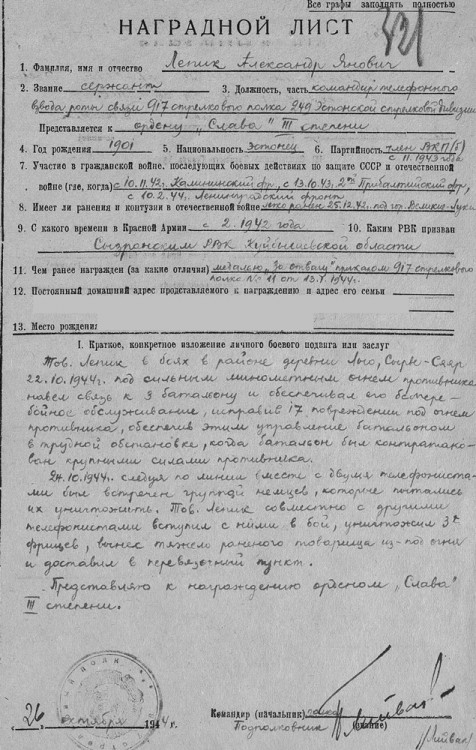 Все графы заполнять полностью
НАГРАДНОЙ ЛИСТ
421
1. Фамилия, имя и отчество Лепик Александр Янович
2. Звание сержант 3. Должность, часть командир телефонного
взвода роты связи 917 стрелкового полка 249 Эстонской стрелковой дивизии
Представляется к ордену „Слава" III степени
4. Год рождения 1901 5. Национальность эстонец 6. Партийность член ВКП(б)
с 11.1943 года
7. Участие в гражданской войне, последующих боевых действиях по защите СССР и отечественной
войне (где, когда) с 10.11.42г. Калининский фр., с 13.10.43. 2ой Прибалтийский фр.,
с 10.2.44. Ленинградский фронт
8. Имеет ли ранения и контузии в отечественной войне легко ранен 25.12.42г. под гор. Великие-Луки
9. С какого времени в Красной Армии с 2.1942 года 10. Каким РВК призван
Сызранским РВК Куйбышевской области
11. Чем ранее награжден (за какие отличия) медалью „За отвагу" приказом 917 стрелкового
полка № 11 от 1944г.
12. Постоянный домашний адрес представляемого к награждению и адрес его семьи
13. Место рождения
I. Краткое, конкретное изложение личного боевого подвига или заслуг
Тов. Лепик в боях в районе деревни Лыо, Сырве-Сяяр
22.10.1944г. под сильным минометным огнем противника
навел связь к 3 батальону и обеспечивал его беспере-
бойное обслуживание, исправив 17 повреждений под огнем
противника, обеспечив этим управление батальоном
в трудной обстановке, когда батальон был контратако-
ван крупными силами противника.
24.10.1944г. следуя по линии вместе с двумя телефониста-
ми был встречен группой немцев, которые пытались
их уничтожить. Тов. Лепик совместно с другими
телефонистами вступил с ними в бой, уничтожил 3х
фрицев, вынес тяжело раненого товарища из-под огня
и доставил в перевязочный пункт.
Представляю к награждению орденом „Слава"
III степени.
Командир (начальник) полка
26 октября 1944г.
Подполковник (звание)